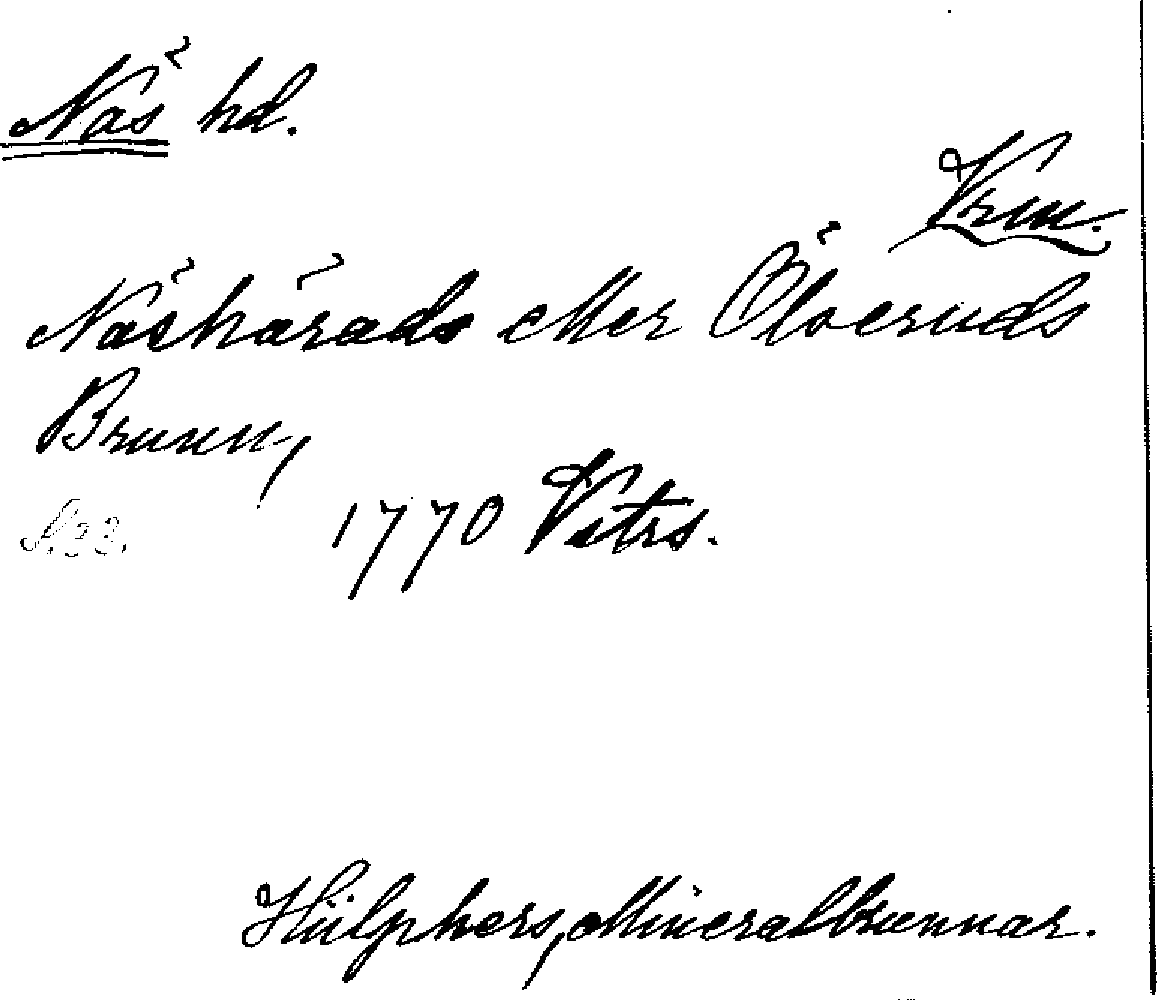 Näs hd.
Vrm.
Näshärads eller Ölveruds
Brunn,
S. 33. 1770 Vitrs.
Hülphers, Mineralbrunnar.